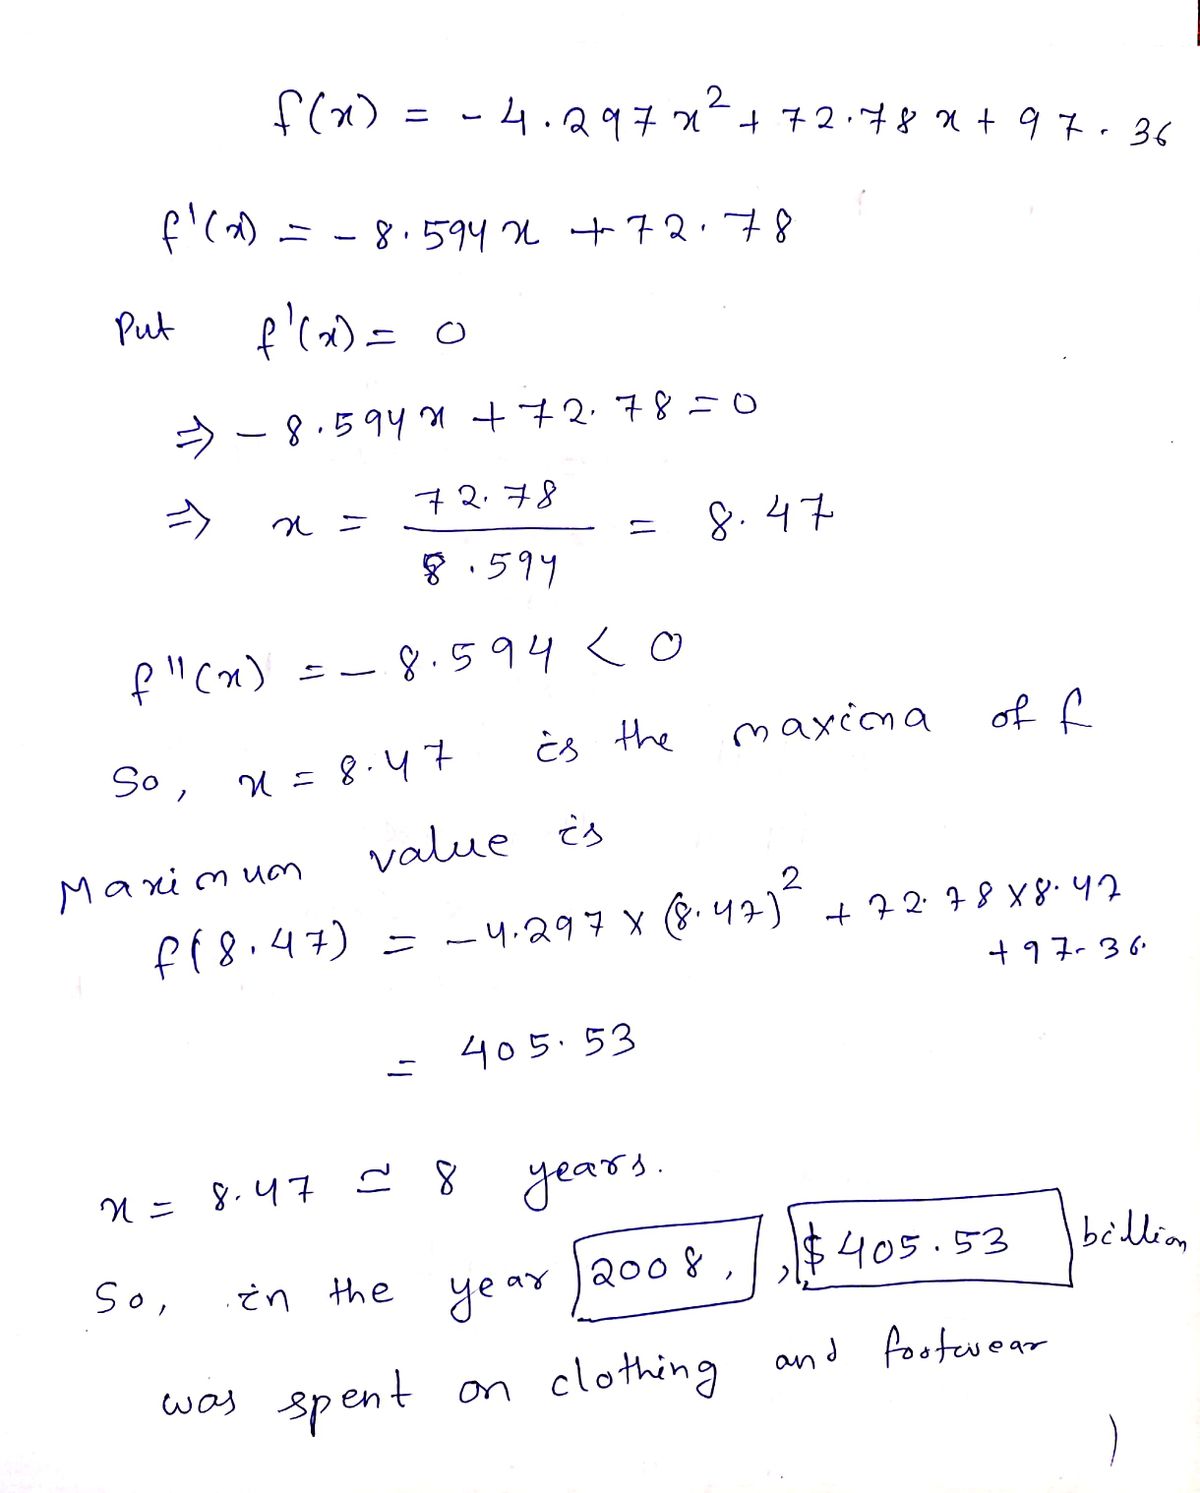 f(x) = -4.297x² + 72.78x + 97.36
f'(x) = -8.594x + 72.78
Put f'(x) = 0
⇒ -8.594x + 72.78 = 0
⇒ x = 72.78 / 8.594 = 8.47
f''(x) = -8.594 < 0
So, x = 8.47 is the maxima of f
Maximum value is
f(8.47) = -4.297 × (8.47)² + 72.78 × 8.47
+ 97.36.
= 405.53
x = 8.47 ≃ 8 years.
So, in the year 2008, , $405.53 billion
was spent on clothing and footwear
)